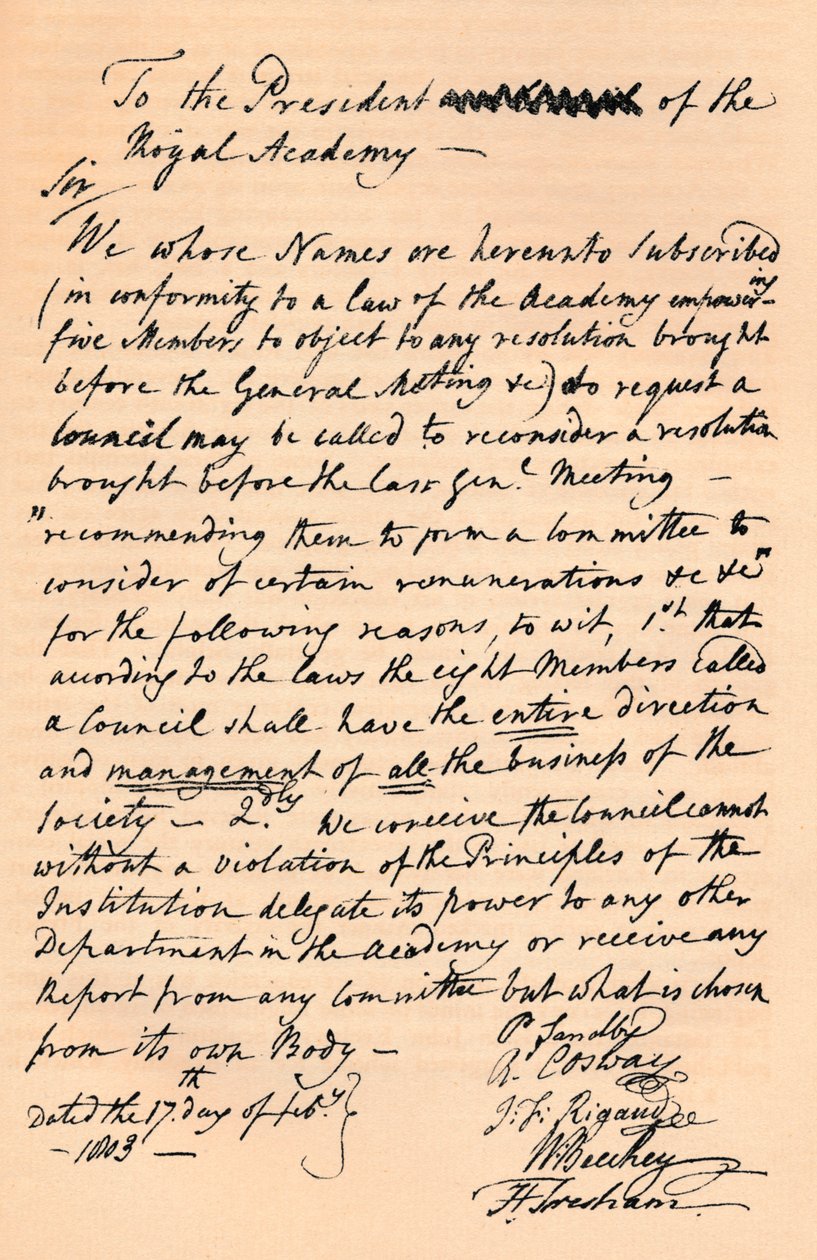 To the President of the
Royal Academy —
Sir
We whose Names are hereunto Subscribed
(in conformity to a law of the Academy empowering
five Members to object to any resolution brought
before the General Meeting &c) to request a
Council may be called to reconsider a resolution
brought before the last Genl. Meeting —
"recommending them to form a Committee to
consider of certain remunerations &c &c"
for the following reasons, to wit, 1.st that
according to the laws the eight Members called
a Council shall have the entire direction
and management of all the business of the
Society — 2.dly We conceive the Council cannot
without a violation of the Principles of the
Institution delegate its power to any other
Department in the Academy or receive any
Report from any Committee but what is chosen
from its own Body —
P Sandby
R. Cosway
J: F: Rigaud
W. Beechey
H Tresham.
Dated the 17.th day of Feb.y
— 1803 —